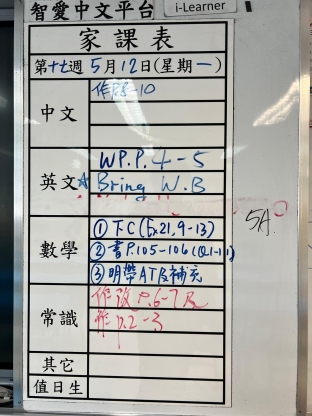 智愛中文平台
i-Learner
家課表
第十七週 5月12日(星期一)
中文
作P.8-10
英文
W.P.P.4-5
☆Bring W.B
5A.
數學
① 下C(Ex.21.9-13)
② 書P.105-106(Q.1-11)
③ 明帶AT及補充
常識
作改 P.6-7及
作 P.2-3
其它
值日生